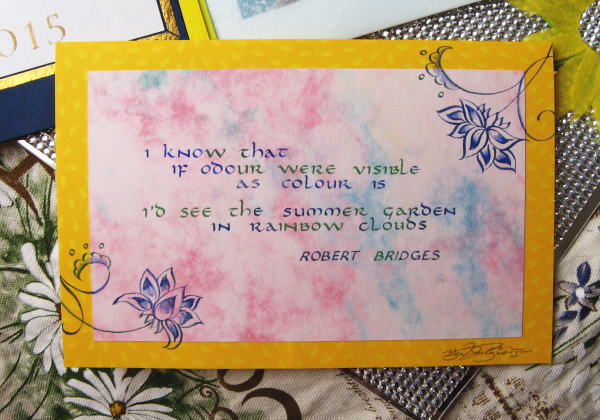 2015
I know that
if odour were visible
as colour is
I'd see the summer garden
in rainbow clouds
ROBERT BRIDGES